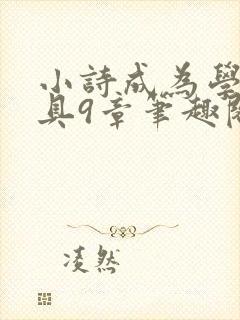 小詩成為學
具9章筆趣閣
凌然